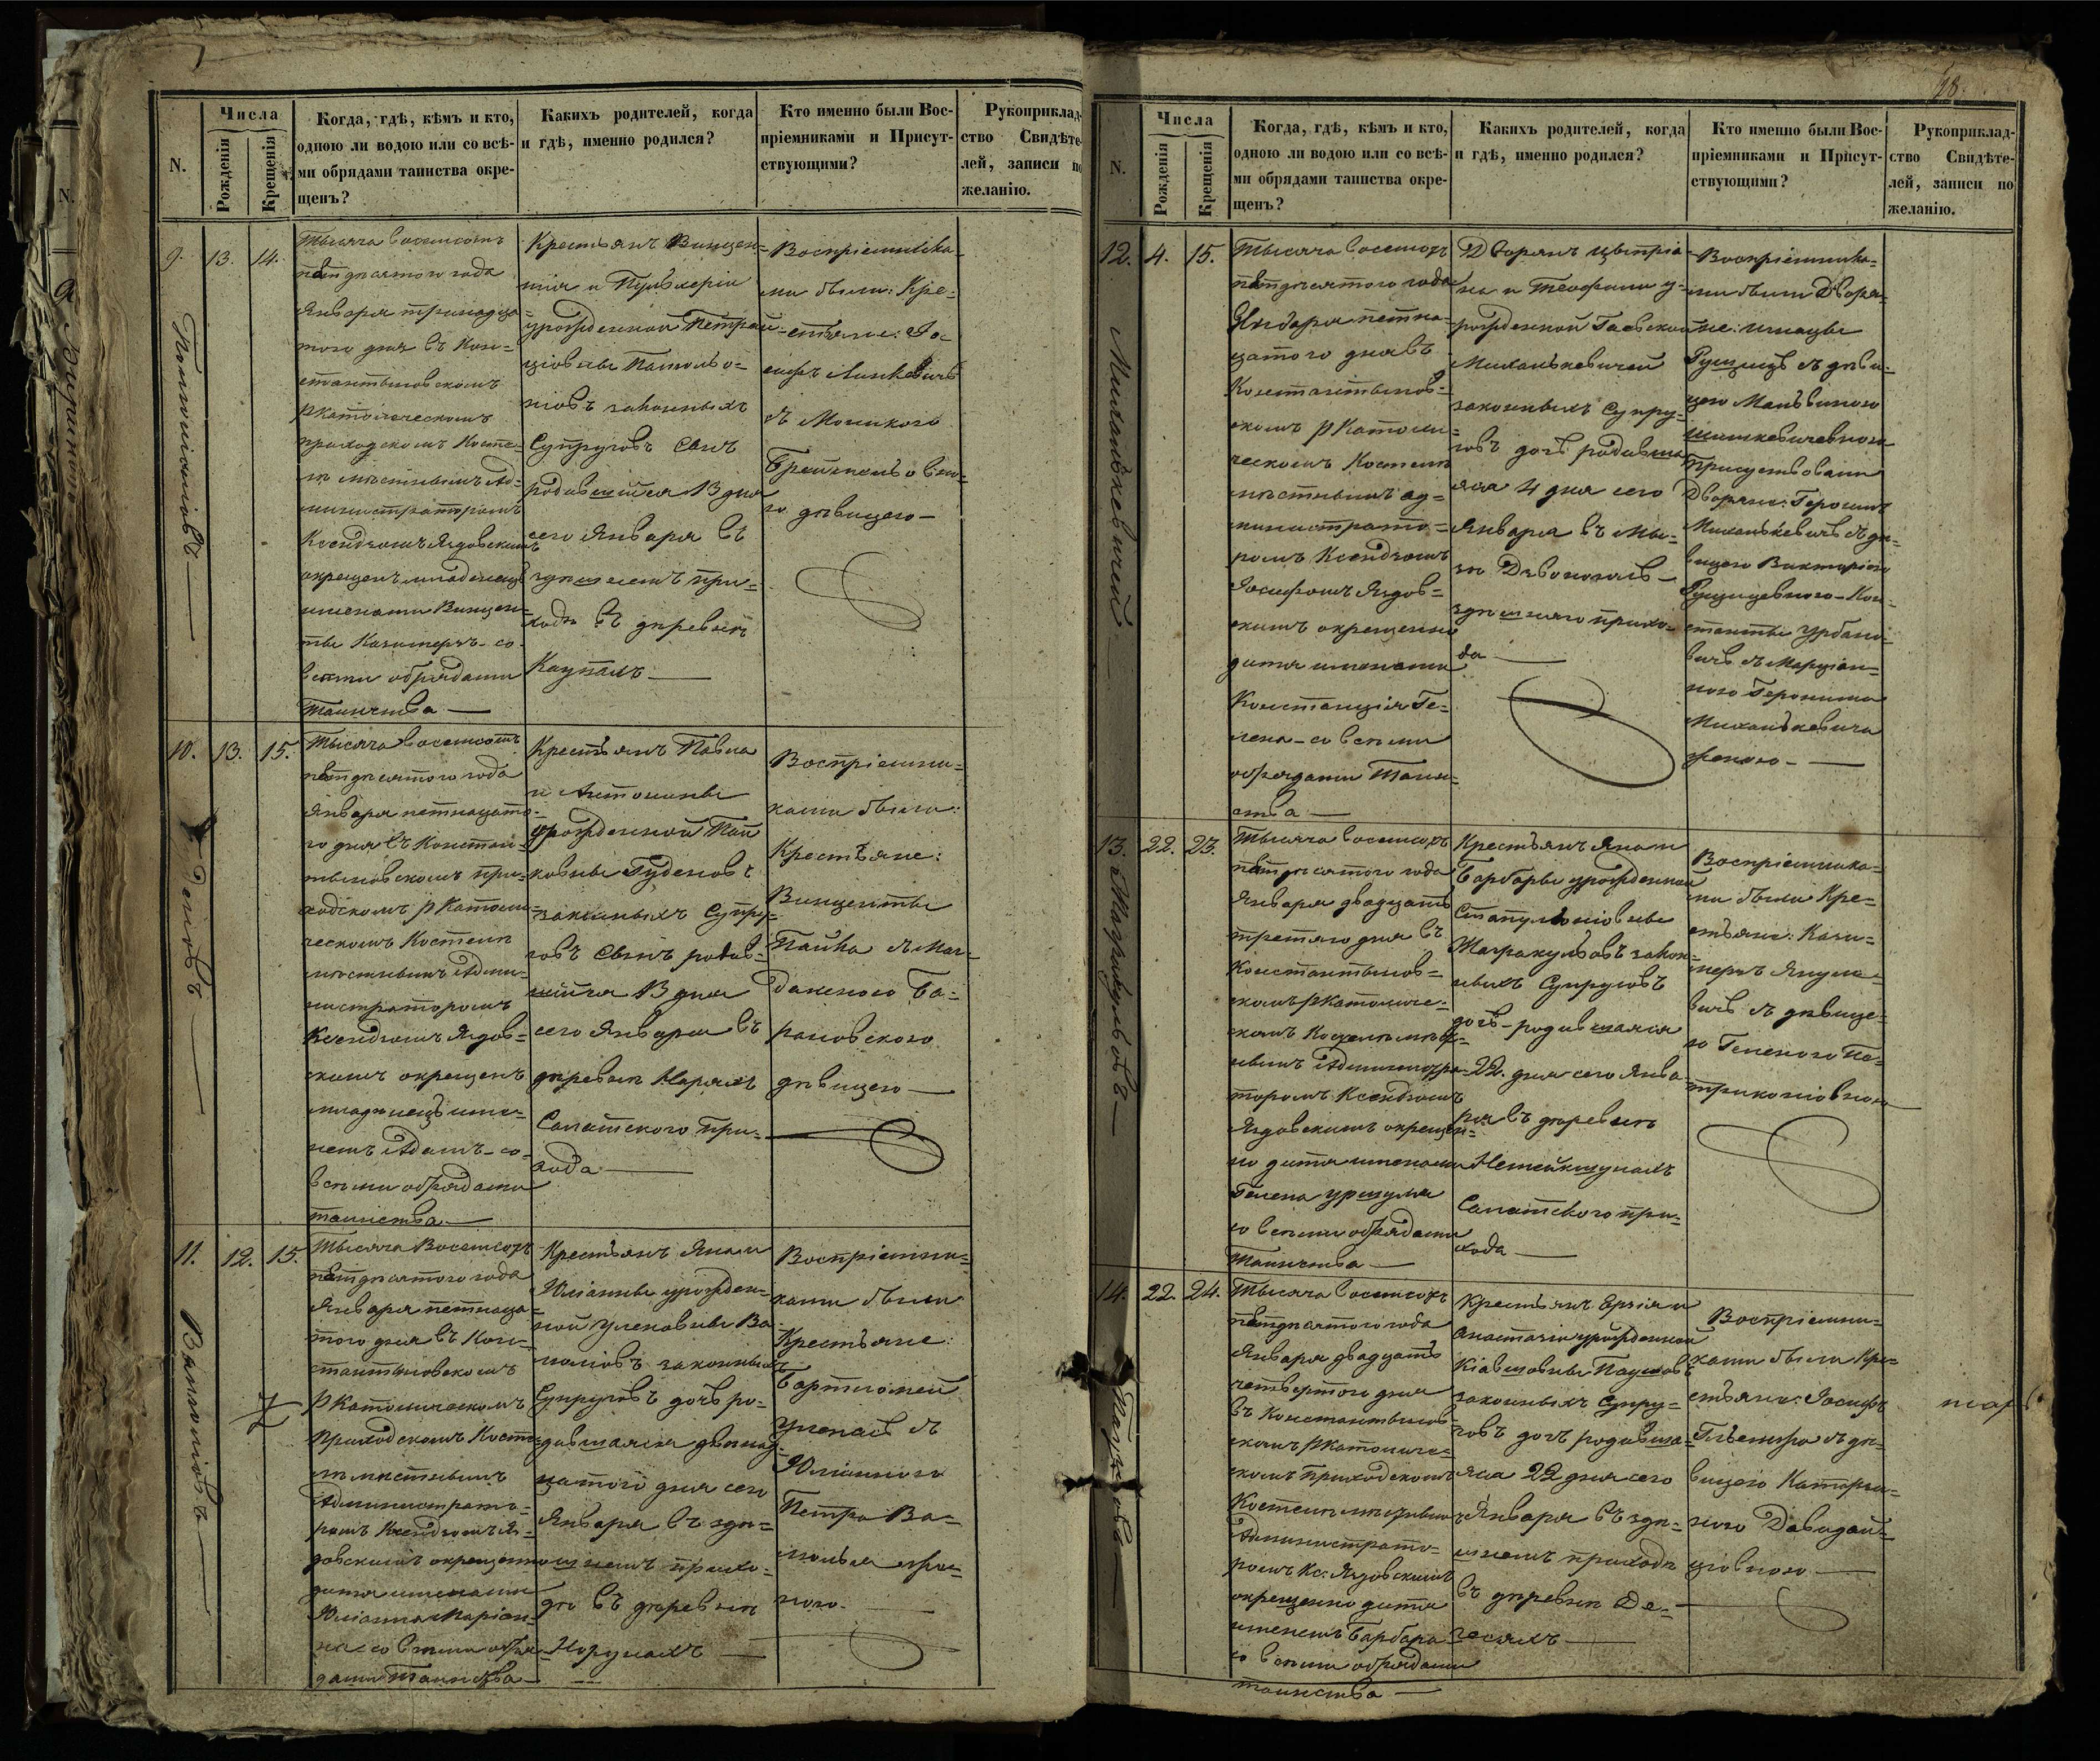 N.
Числа
Рожденія
Крещенія
Когда, гдѣ, кѣмъ и кто,
одною ли водою или со всѣ-
ми обрядами таинства окре-
щенъ?
Какихъ родителей, когда
и гдѣ, именно родился?
Кто именно были Вос-
пріемниками и Присут-
ствующими?
Рукоприклад-
ство Свидѣте-
лей, записи по
желанію.
9.
13.
14.
Тысяча восемсотъ
пятдѣсятого года
Января тринадца=
того дня въ Кон=
стантыновскомъ
РКатолическомъ
приходскомъ Косте=
лѣ мѣстнымъ Ад=
министраторомъ
Ксендзомъ Яздовскимъ
окрещенъ младенецъ
именами Винцен=
ты Казимеръ - со
всѣми обрядами
Таинства —
Крестьянъ Винцен=
тія и Пульхеріи
урожденной Петрай=
ціовны
законныхъ
Супруговъ Сынъ
родившійся 13 дня
сего Января въ
здѣшнемъ при=
ходѣ въ дѣревнѣ
Каупахъ —
Воспріемника=
ми были: Кре=
стьяне: Іо=
сифъ
съ Моникого
дѣвицею —
10.
13.
15.
Тысяча восемсотъ
пятдѣсятого года
Января пятнацато=
го дня въ Констан=
тыновскомъ при=
ходскомъ РКатоли=
ческомъ Костелѣ
мѣстнымъ Адми=
нистраторомъ
Ксендзомъ Яздов=
скимъ окрещенъ
младенецъ име=
немъ Адамъ - со
всѣми обрядами
таинства —
Крестьянъ Павла
и Антонины
урожденной Пай
ковны Гуденовъ
законныхъ Супру=
говъ Сынъ родив=
шійся 13 дня
сего Января въ
дѣревнѣ Наряхъ
Салатского при=
хода —
Воспріемни=
ками были:
Крестьяне:
Винценты
Пайка съ Маг=
даленого Ба=
рановского
дѣвицею —
11.
12.
15.
Вамоліовъ —
Тысяча Восемсотъ
пятдѣсятого года
Января пятнаца=
того дня въ Кон=
стантыновскомъ
РКатолическомъ
Приходскомъ Косте=
лѣ мѣстнымъ
Администрато=
ромъ Ксендзомъ Яз=
довскимъ окрещенно
дитя именами
Юліанна Маріан=
на со всѣми обря=
дами Таинства —
Крестьянъ Яна и
Юліанны урожден=
ной Уленовны Ва=
моліовъ законныхъ
Супруговъ дочь ро=
дившаяся двѣнад=
цатого дня сего
Января въ здѣ=
шнемъ прихо=
дѣ въ дѣревнѣ
Норунахъ —
Воспріемни=
ками были
Крестьяне:
Бартломей
съ
Юліанного
Петра Ва=
моля жо=
ного. —
28.
N.
Числа
Рожденія
Крещенія
Когда, гдѣ, кѣмъ и кто,
одною ли водою или со всѣ-
ми обрядами таинства окре-
щенъ?
Какихъ родителей, когда
и гдѣ, именно родился?
Кто именно были Вос-
пріемниками и Присут-
ствующими?
Рукоприклад-
ство Свидѣте-
лей, записи по
желанію.
12.
4.
15.
Михалькевичей —
Тысяча восемсотъ
пятдѣсятого года
Января пятна=
цатого дня въ
Константынов=
скомъ РКатоли=
ческомъ Костелѣ
мѣстнымъ Ад=
министрато=
ромъ Ксендзомъ
Іосифомъ Яздов=
скимъ окрещенно
дитя именами
Констанція Ге=
лена - со всѣми
обрядами Таин=
ства —
Дворянъ Цыпріа=
на и Теофили у=
рожденной Гаевской
Михалькевичей
законныхъ Супру=
говъ дочь родивша=
яся 4 дня сего
Января въ мы=
зѣ
здѣшняго прихо=
да —
Воспріемника=
ми были Дворя=
не: Игнацы
Рущицъ съ дѣви=
цею Мальвиного
Присуствовали
Дворяне: Геронимъ
Михалькевичъ съ дѣ=
вицею Викторіего
Рущицевного - Кон=
станты Урбано=
вичъ съ Маріан=
ного Геронима
Михалькевича
женою. —
13.
22.
23.
Жагракульовъ —
Тысяча восемсотъ
пятдѣсятого года
Января двадцать
третяго дня въ
Константынов=
скомъ РКатоличе=
скомъ Костелѣ мѣст=
нымъ Администра=
торомъ Ксендзомъ
Яздовскимъ окрещен=
но дитя именами
Гелена Уршуля
со всѣми обрядами
Таинства —
Крестьянъ Яна и
Барбары урожденной
Жагракульовъ закон=
ныхъ Супруговъ
дочь - родившаяся
22. дня сего Янва=
ря въ дѣревнѣ
Салатского при=
хода —
Воспріемника=
ми были Кре=
стьяне: Кази=
меръ Януле=
вичъ съ дѣвице=
ю Геленого Па=
триконіовного
14.
22.
24.
Тысяча восемсотъ
пятдѣсятого года
Января двадцать
четвертого дня
въ Константынов=
скомъ РКатоличе=
скомъ Приходскомъ
Костелѣ мѣстнымъ
Администрато=
ромъ Кс: Яздовскимъ
окрещенно дитя
именемъ Барбара
со всѣми обрядами
таинства —
Крестьянъ Ержія и
Анастазіи урожденной
законныхъ Супру=
говъ дочь родивша=
яся 22 дня сего
Января въ здѣ=
шнемъ приходѣ
въ дѣревнѣ Де=
гесяхъ —
Воспріемни=
ками были Кре=
стьяне: Іосифъ
съ дѣ=
вицею Катары=
ного Давидай=
ціовного —